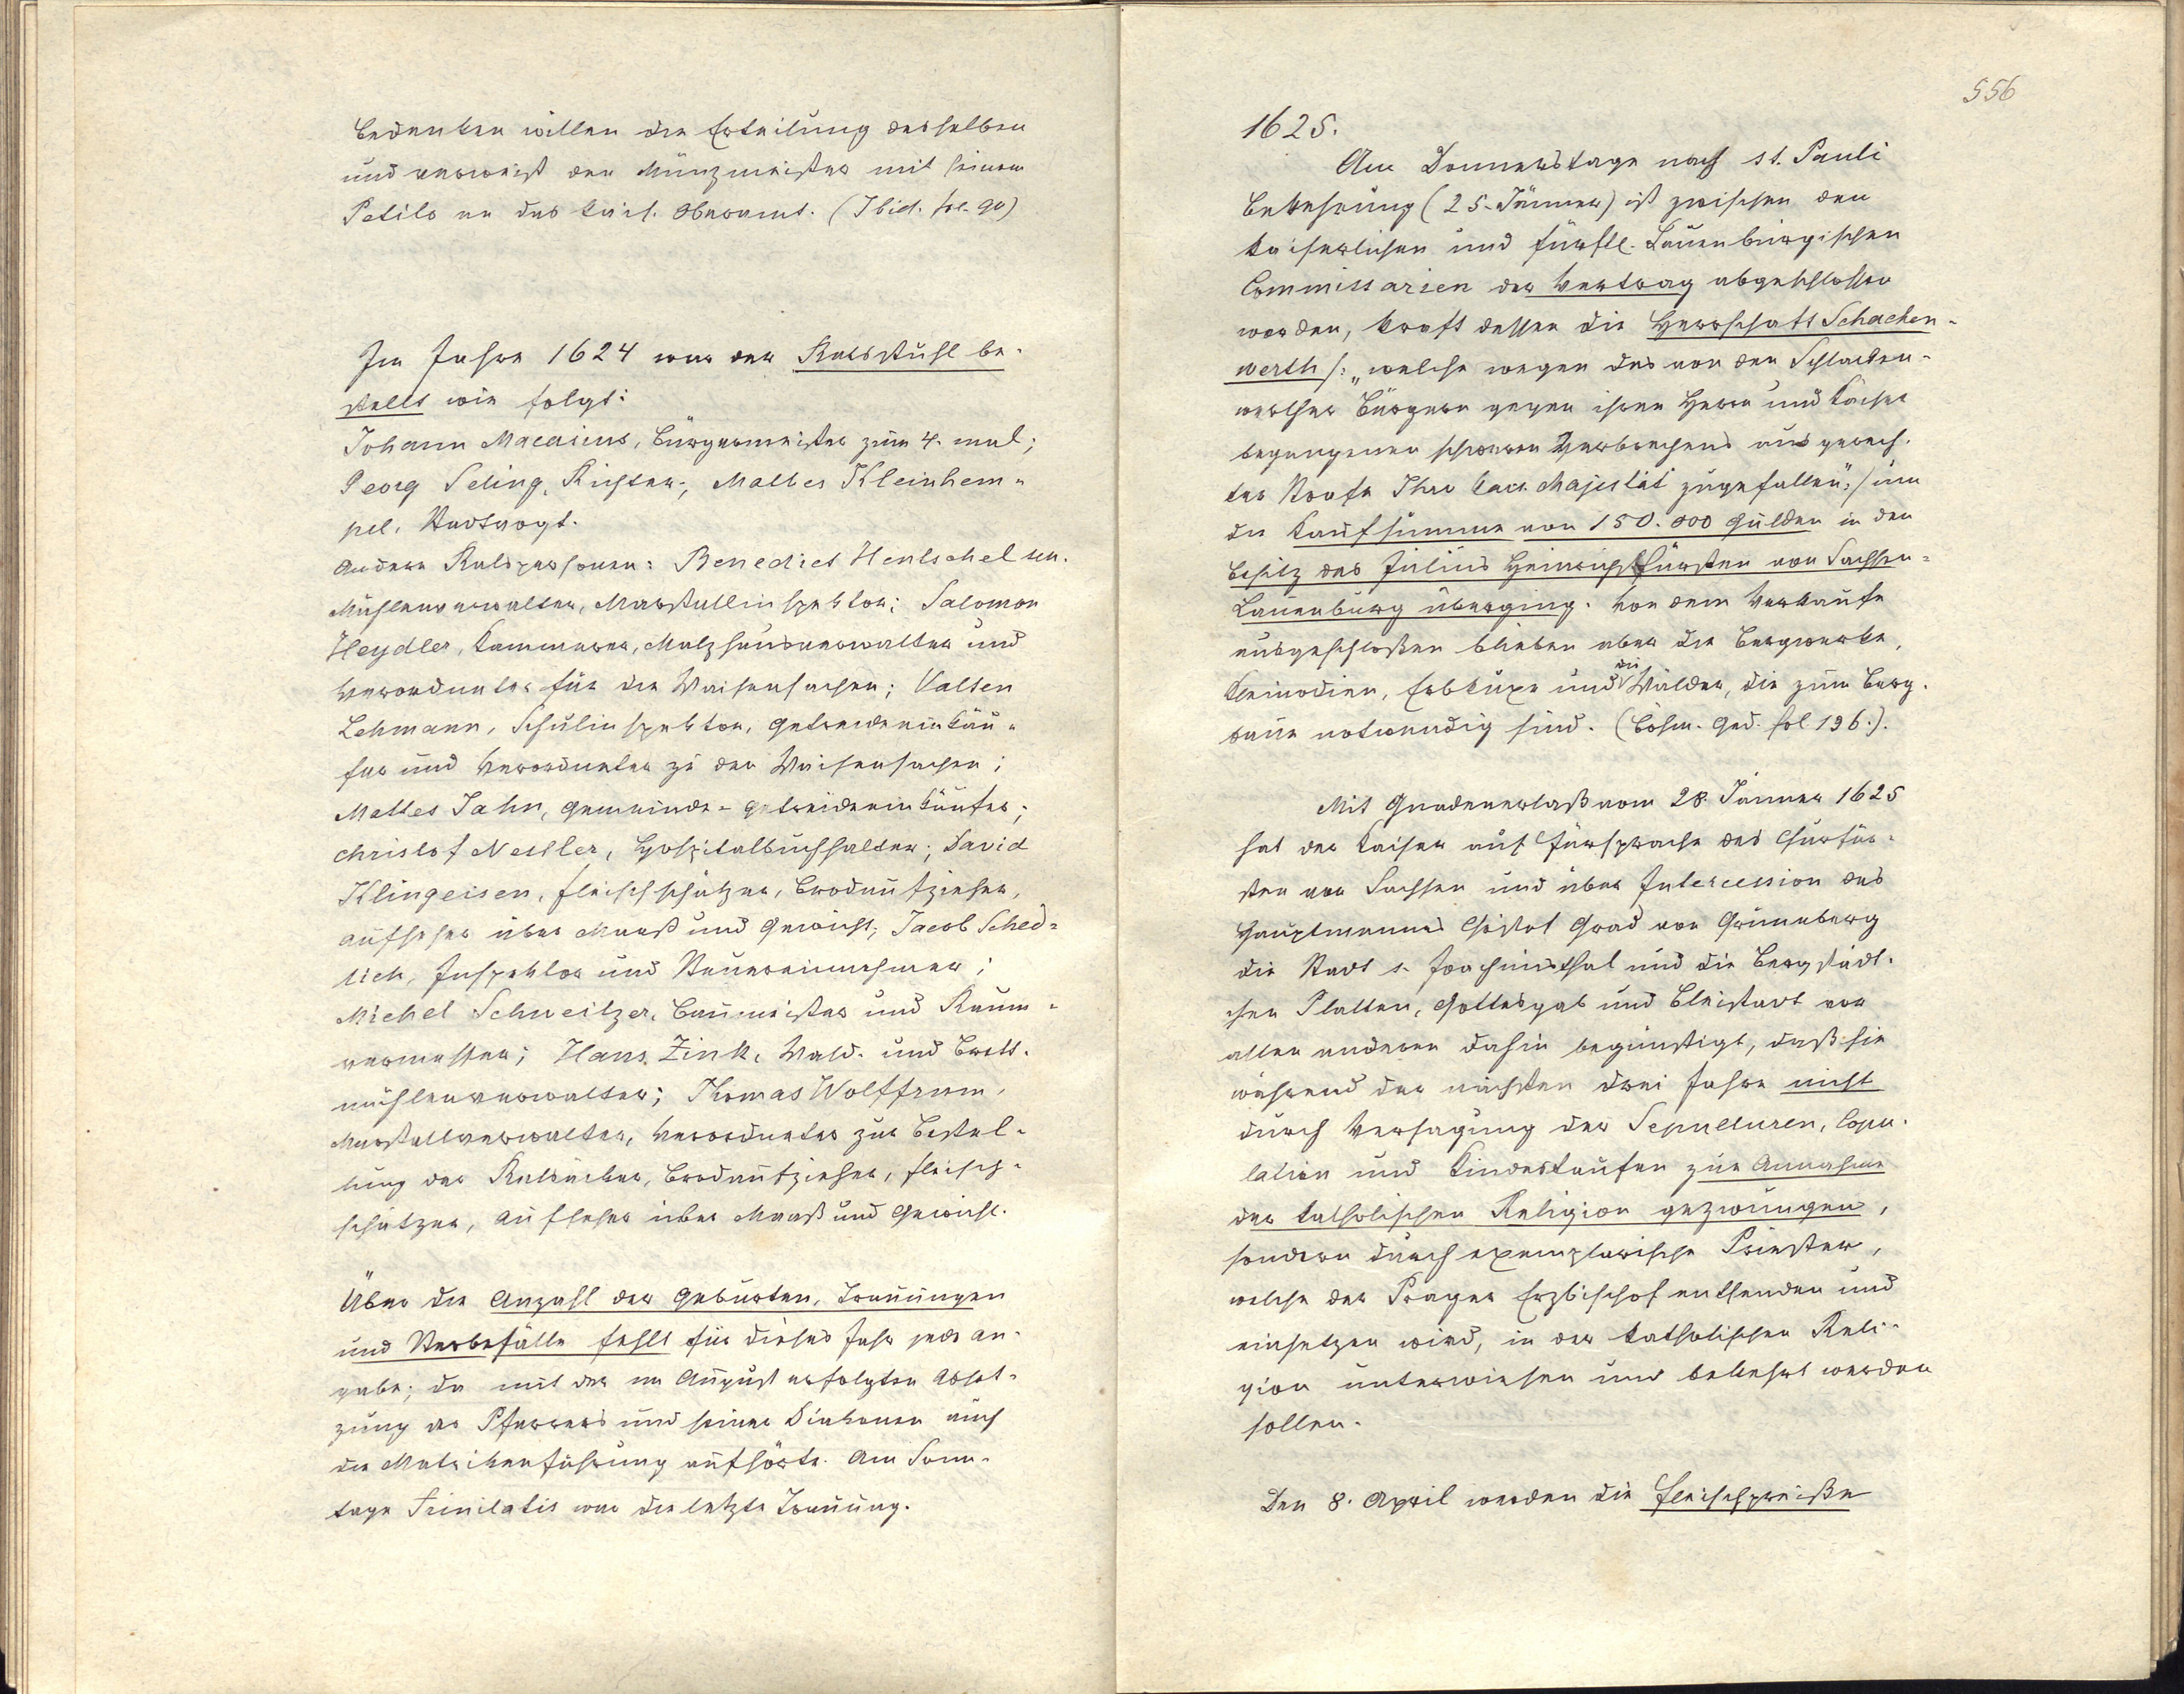 bedenken willen die Erteilung desselben
und verweist den Münzmeister mit seinem
Petito an das kais. Oberamt. (Ibid. fol. 90)
Im Jahre 1624 war der Ratsstuhl be-
stellt wie folgt:
Johann Macasius, Bürgermeister zum 4. mal;
Georg Seling, Richter; Mattes Kleinhem-
pel, Stadtvogt.
Andere Ratspersonen: Benedict Hentschel sen.
Mühlenverwalter, Marstallinspektor; Salomon
Heydler, Kammerer, Malzhausverwalter und
Verordneter für die Waisensachen; Valten
Lehmann, Schulinspektor, Getreideeinkäu-
fer und Verordneter zu den Waisensachen;
Mattes Jahn, Gemeinde-Getreideeinkäufer;
Christof Nestler, Hospitalbuchhalter; David
Klingeisen, Fleischschätzer, Brodaufzieher,
Aufseher über Maaß und Gewicht; Jacob Sched-
lich, Inspektor und Steuereinnehmer;
Michel Schweitzer, Baumeister und Raum-
vermesser; Hans Zink, Wald- und Brett-
mühlenverwalter; Thomas Wolffrum,
Marstallverwalter, Verordneter zur Bestel-
lung der Ratsäcker, Brodaufzieher, Fleisch-
schätzer, Aufseher über Maaß und Gewicht.
Über die Anzahl der Geburten, Trauungen
und Sterbefälle fehlt für dieses Jahr jede An-
gabe; da mit der im August erfolgten Abset-
zung des Pfarrers und seiner Diakonen auch
die Matrikenführung aufhörte. Am Sonn-
tage Trinitatis war die letzte Trauung.
556
1625.
Am Donnerstage nach st. Pauli
Bekehrung (25. Jänner) ist zwischen den
kaiserlichen und fürstl. Lauenburgischen
Commissarien der Vertrag abgeschlossen
worden, kraft dessen die Herrschaft Schacken-
werth /: „welche wegen des von den Schlacken-
werther Bürgern gegen ihren Herrn und Kaiser
begangenen schweren Verbrechens aus gerech-
ter Strafe Ihro kais. Majestät zugefallen“ :/ um
die Kaufsumme von 150.000 Gulden in den
Besitz des Julius Heinrich Fürsten von Sachsen-
Lauenburg überging. Von dem Verkaufe
ausgeschloßen blieben aber die Bergwerke,
Kleinodien, Erbkuxe und die Wälder, die zum Berg-
baue notwendig sind. (Böhm. Ged. fol 196.).
Mit Gnadenerlaß vom 28. Jänner 1625
hat der Kaiser auf Fürsprache des Churfür-
sten von Sachsen und über Intercession des
Hauptmannes Christof Grad von Grünneberg
die Stadt s. Joachimsthal und die Bergstädt-
chen Platten, Gottesgab und Bleistadt vor
allen anderen dahin begünstigt, daß sie
während der nächsten drei Jahre nicht
durch Versagung der Sepulturen, Copu-
lation und Kindestaufen zur Annahme
der katholischen Religion gezwungen,
sondern durch exemplarische Priester,
welche der Prager Erzbischof entsenden und
einsetzen wird, in der katholischen Reli-
gion unterwiesen und bekehrt werden
sollen.
Den 8. April werden die Fleischpreiße